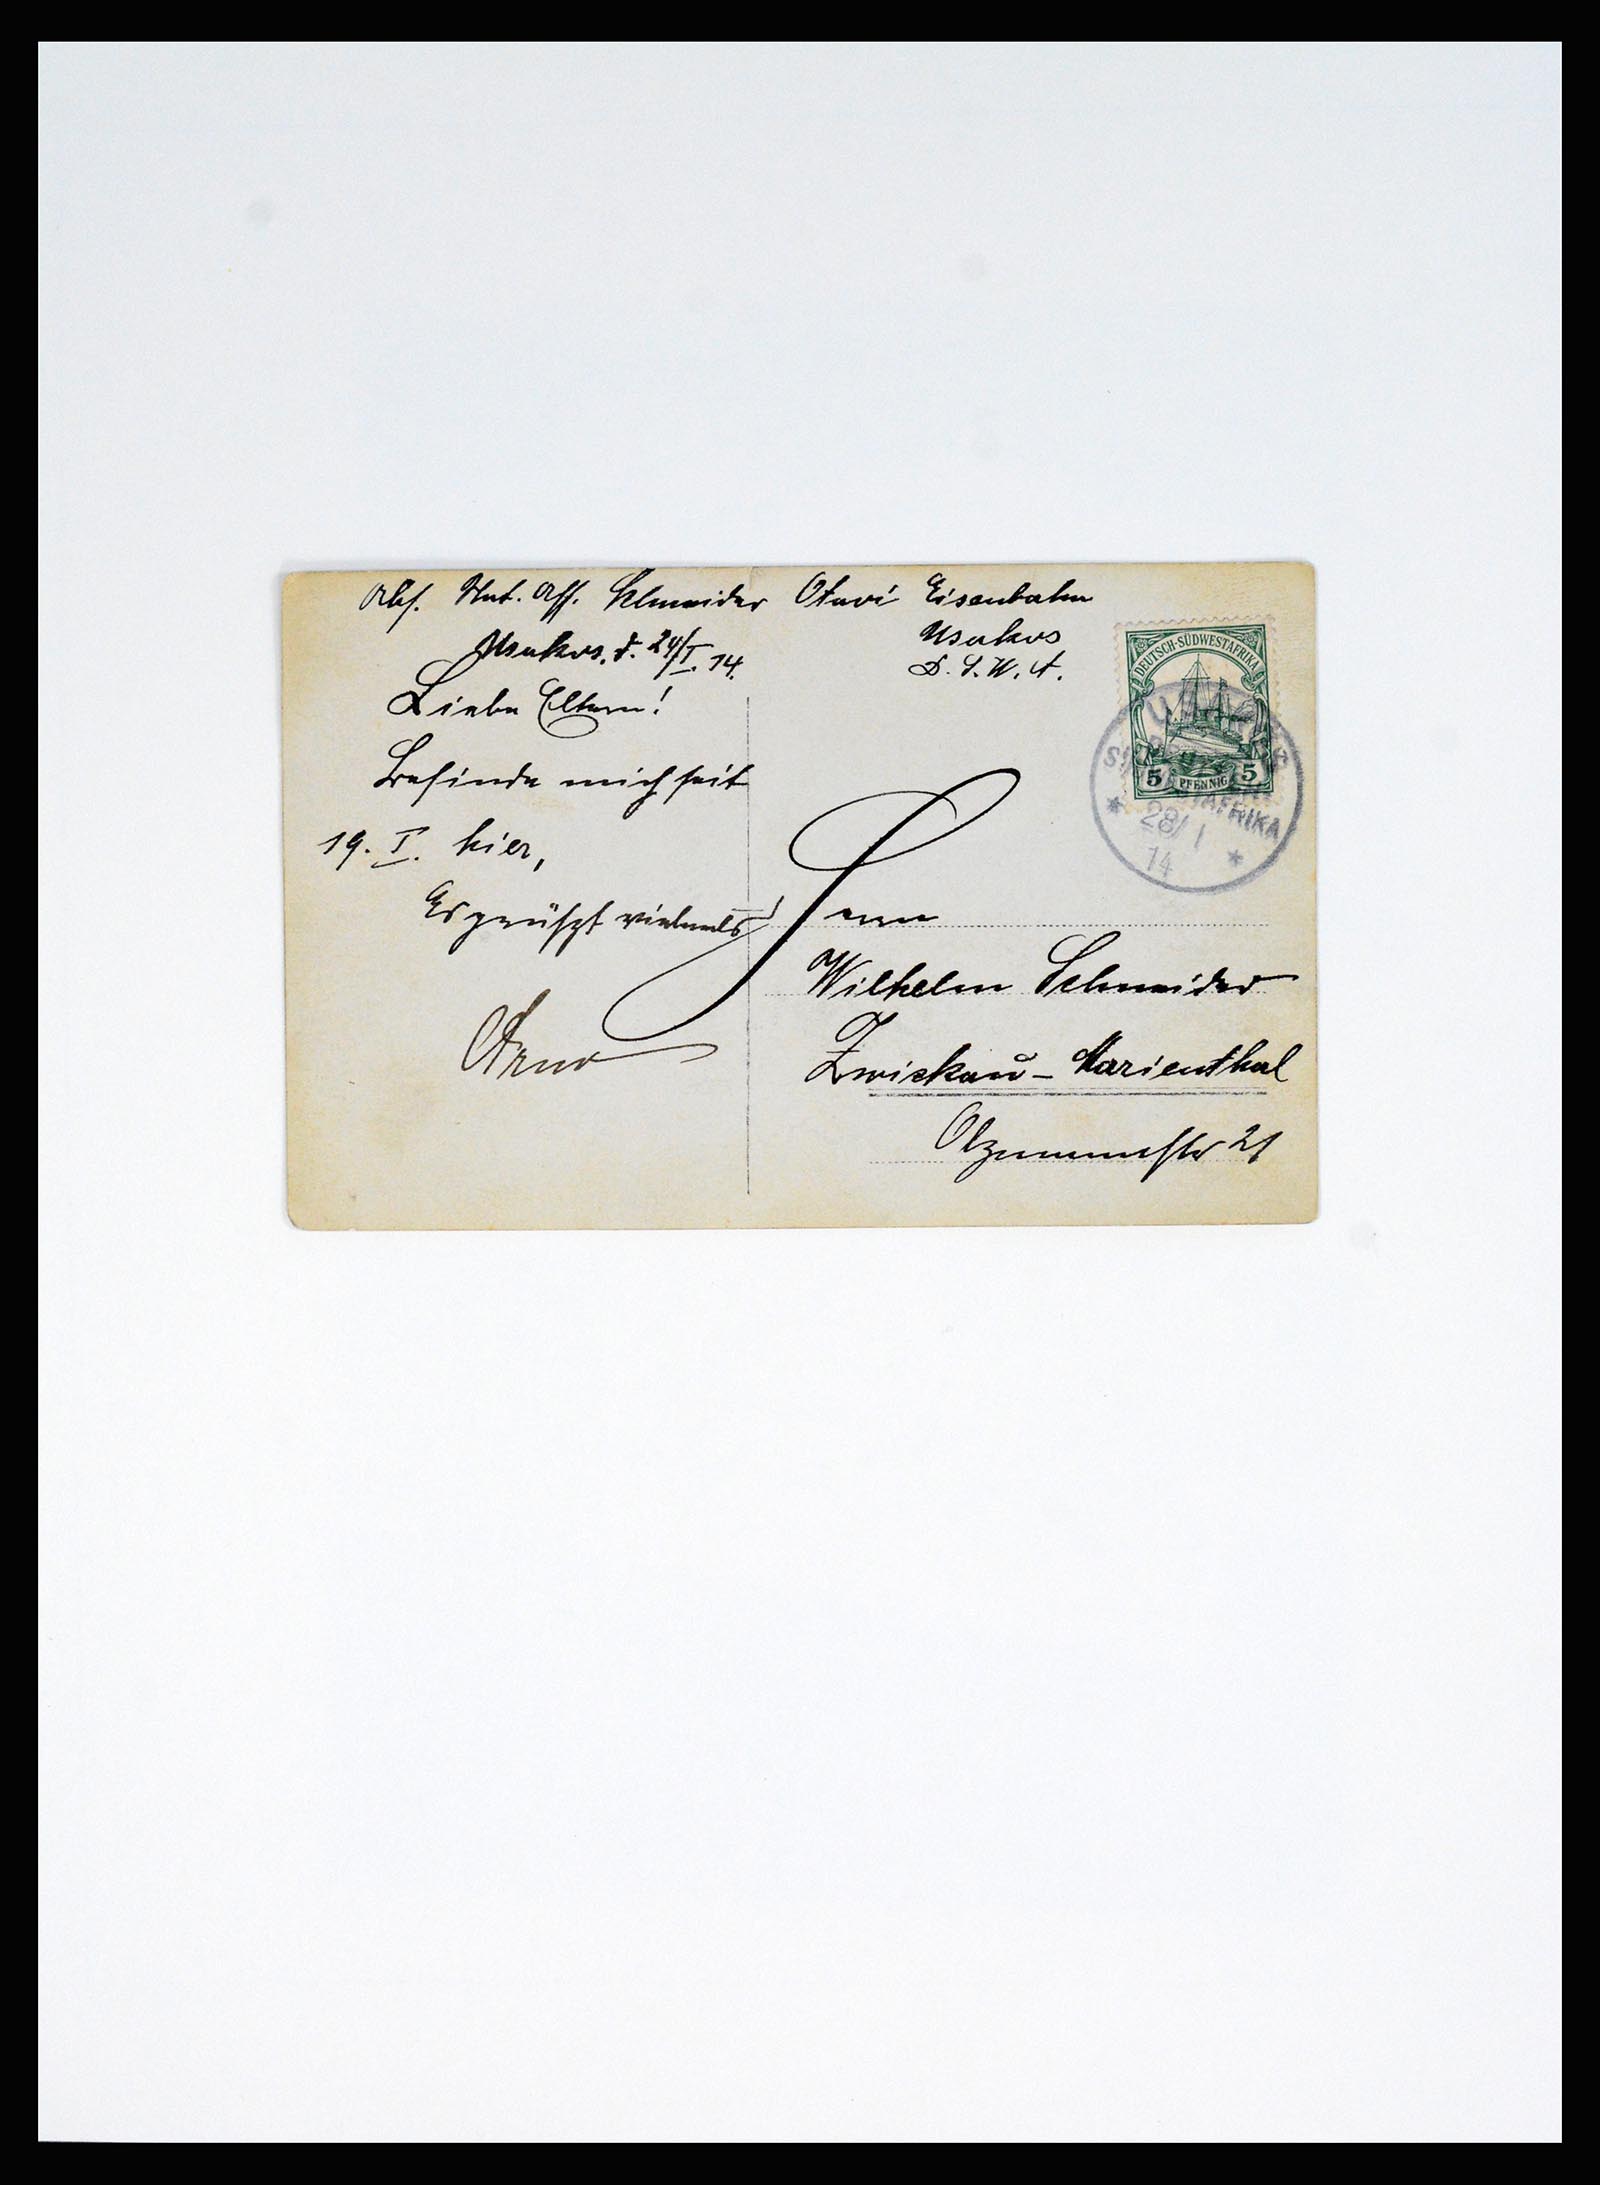 Abs. Unt. Off. Schneider Otavi Eisenbahn
Usakos
D. S. W. A.
Usakos, d. 24/I. 14.
Liebe Eltern!
Befinde mich seit
19. I. hier,
Es grüßt vielmals
Arno
DEUTSCH-SÜDWESTAFRIKA
5 PFENNIG 5
28/1
14
Herrn
Wilhelm Schneider
Zwickau - Marienthal
21